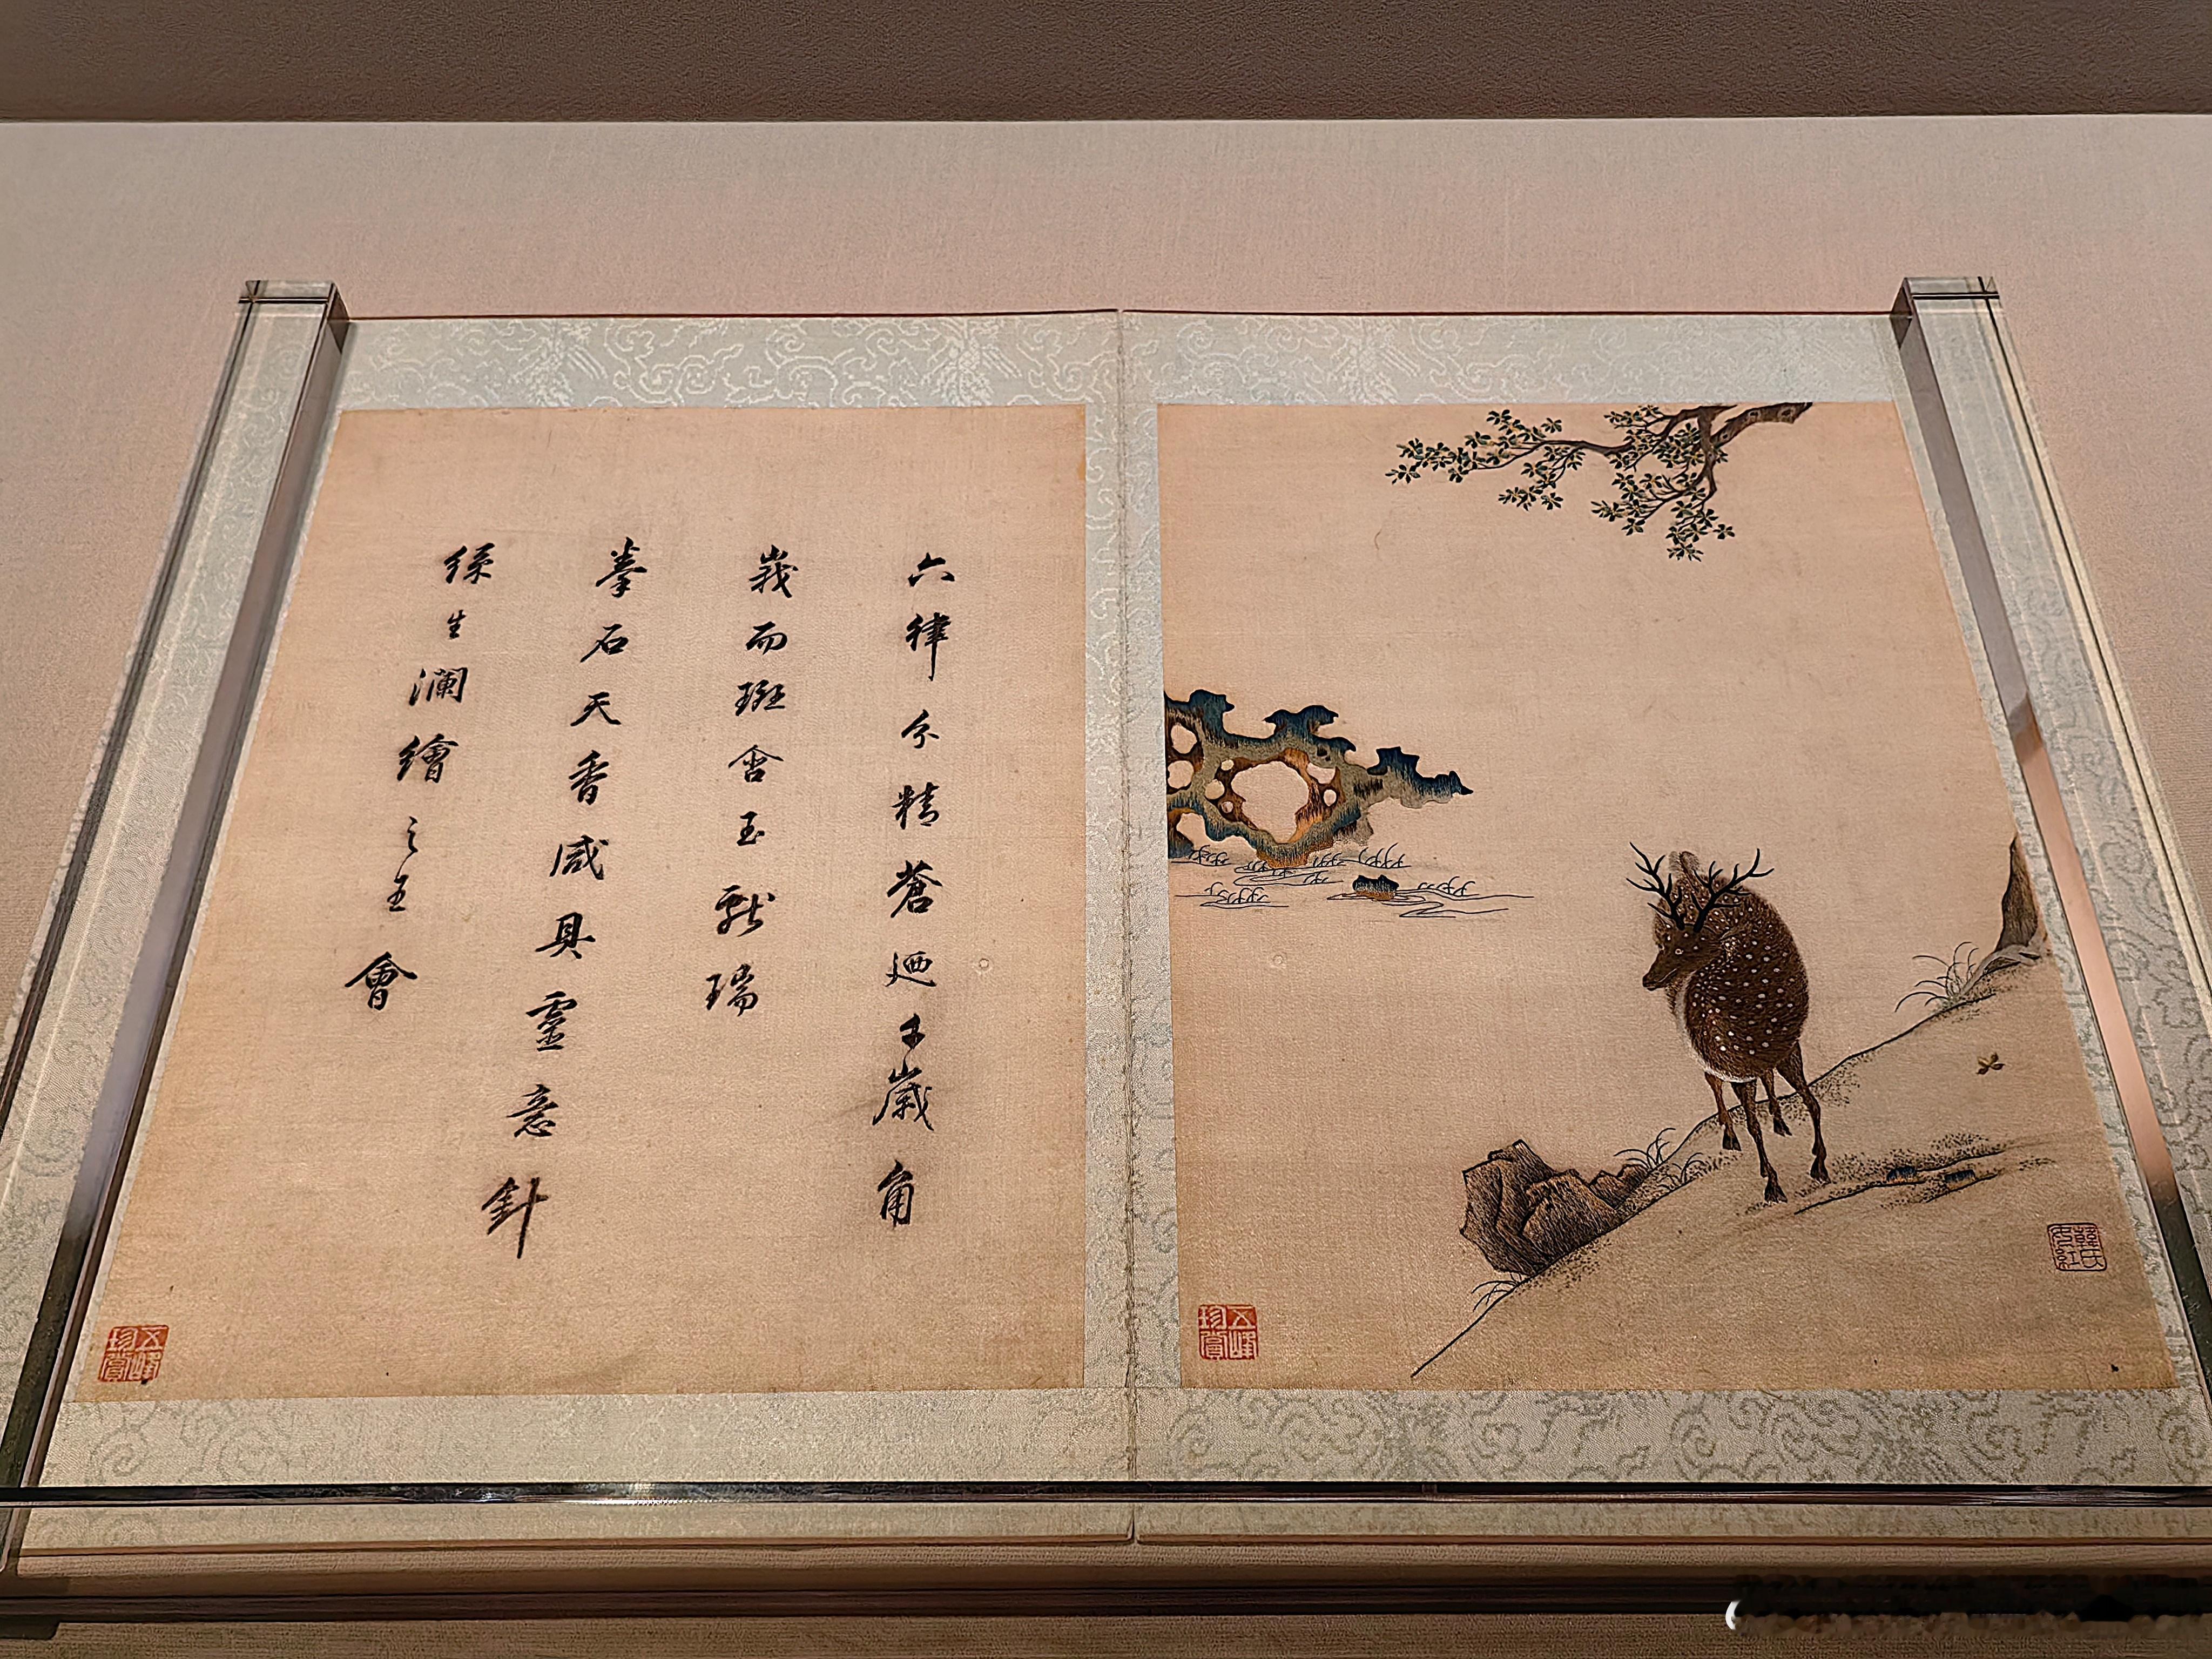 六律分精蒼迺千歲角
峩而斑含玉獻瑞
拳石天香咸具靈意針
絲生瀾繪之王會
韓氏女紅
五峰珍賞
五峰珍賞